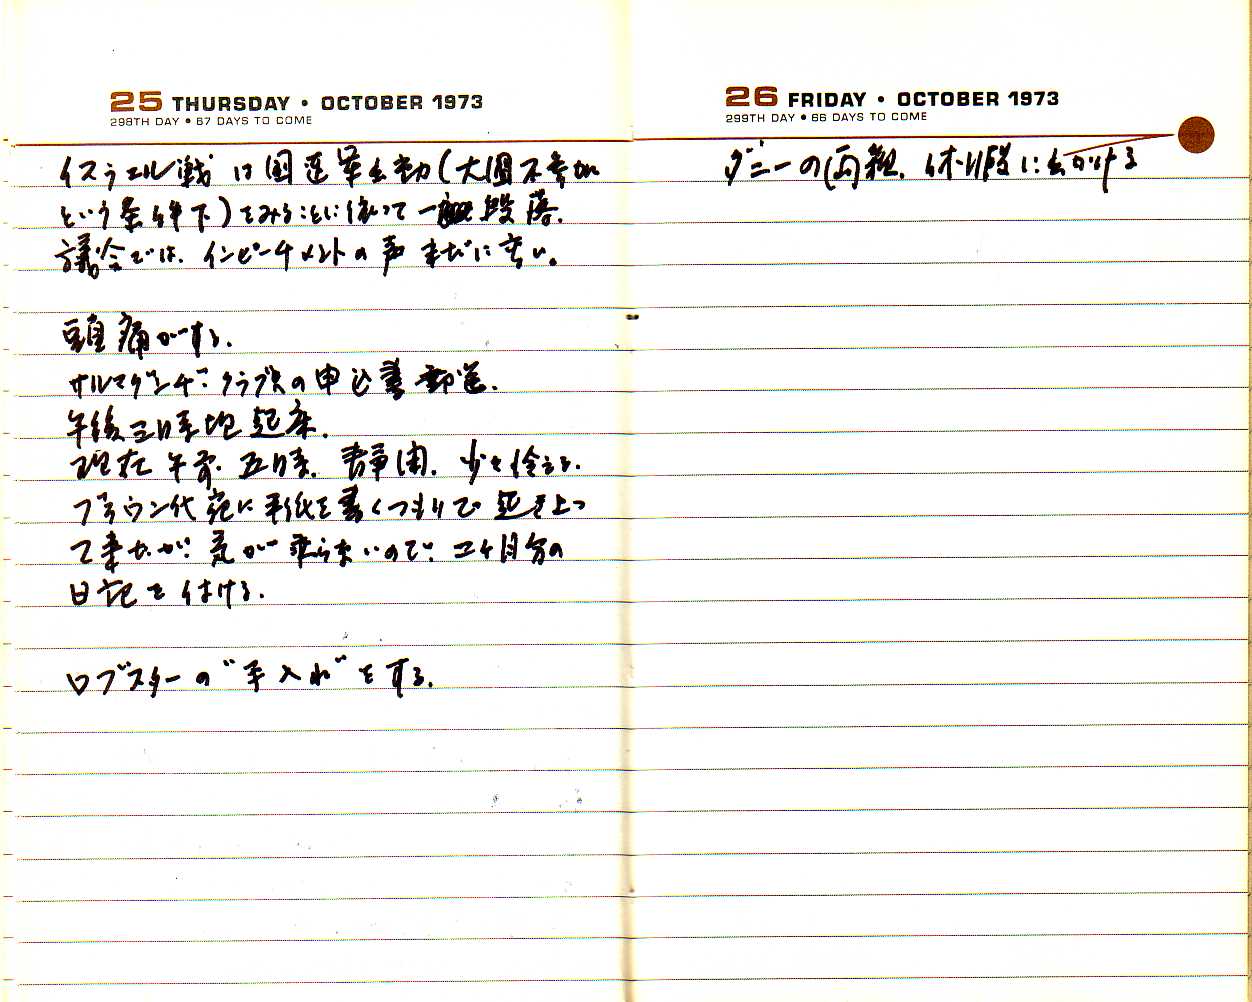 25 THURSDAY • OCTOBER 1973
298TH DAY • 67 DAYS TO COME
イスラエル戦は国連軍出動(大国不参加
という条件下)をみることに依って一段落.
議会では、インピーチメントの声まだに高い。
頭痛がする.
サルマグンヂ・クラブへの申込書郵送.
午後三時半頃起床.
現在午前五時. 静閑. 少々冷える.
ブラウン代宛に手紙を書くつもりで起き上っ
て来たが、気が乗らないので、二ヶ月分の
日記を付ける.
ロブスターの"手入れ"をする.
26 FRIDAY • OCTOBER 1973
299TH DAY • 66 DAYS TO COME
ダニーの両親、休暇に出かける